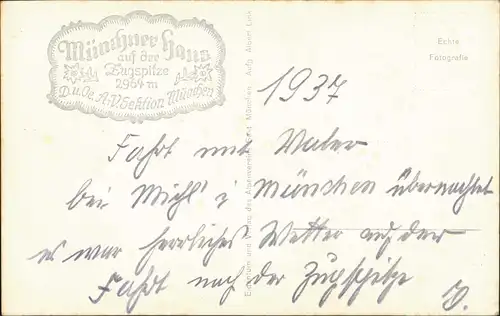 Münchner Haus
auf der
Zugspitze
2964 m
D.u.Oe.A.V. Sektion München
Echte
Fotografie
1937
Fahrt mit Vater
bei Michl i München übernachtet
es war herrliches Wetter auf der
Fahrt nach der Zugspitze
Eigentum und Verlag des Alpenvereins, Sekt. München, Aufn.